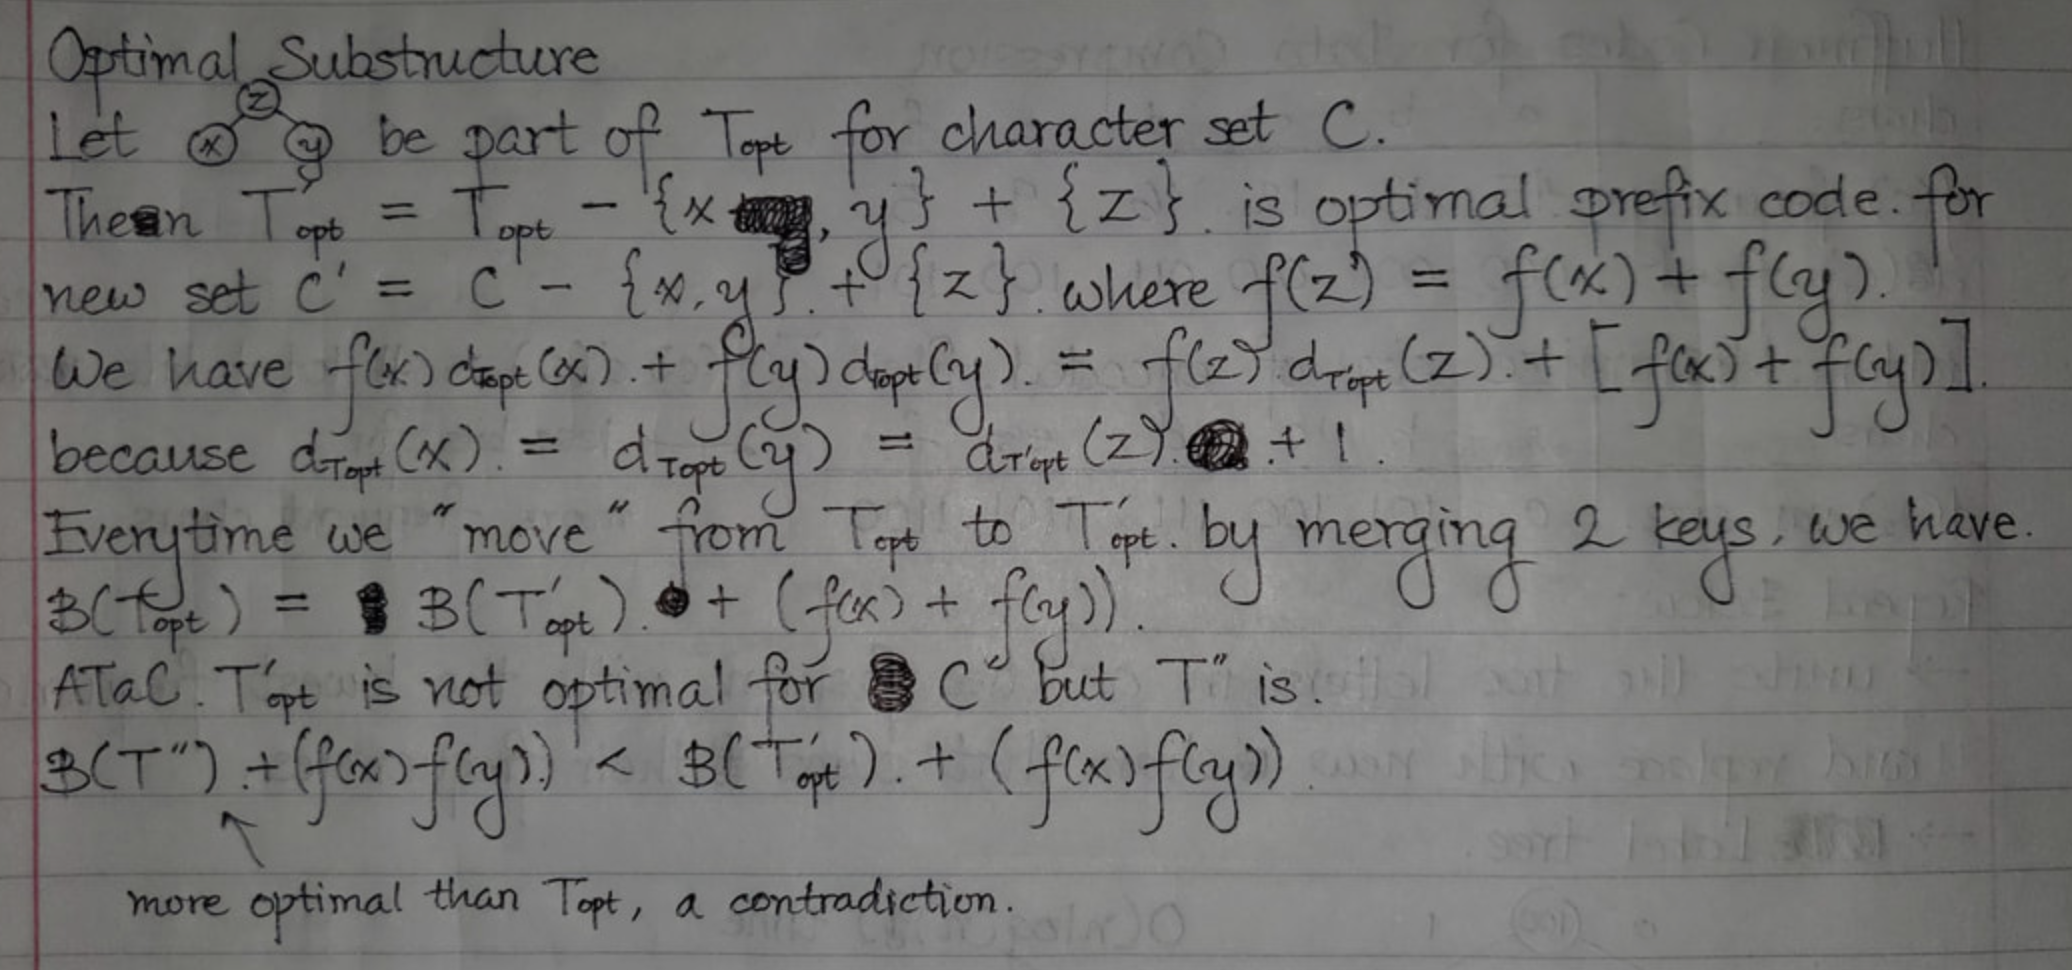 Optimal Substructure
Let z x y be part of Topt for character set C.
Then T'opt = Topt - {x, y} + {z}. is optimal prefix code. for
new set C' = C - {x, y}. + {z}. where f(z) = f(x) + f(y).
We have f(x) dTopt (x). + f(y) dTopt (y). = f(z) dT'opt (z). + [f(x) + f(y)].
because dTopt (x). = dTopt (y) = dT'opt (z). + 1.
Everytime we "move" from Topt to T'opt. by merging 2 keys, we have.
B(Topt) = B(T'opt). + (f(x) + f(y)).
ATaC. T'opt is not optimal for C' but T" is.
B(T"). + (f(x) f(y)) < B(T'opt). + (f(x) f(y)).
more optimal than Topt, a contradiction.